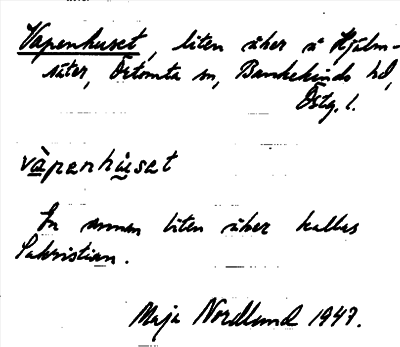 Vapenhuset, liten åker å Hjälm-
säter, Östomta sn, Bankekinds hd,
Östg. l.
và̱penhu̱set
En annan liten åker kallas
Sakristian.
Maja Nordlund 1947.